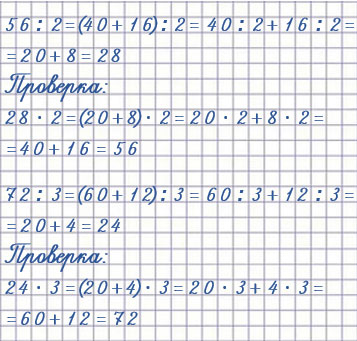 56 : 2=(40+16) : 2 = 40 : 2+16 : 2=
=20+8=28
Проверка:
28 · 2=(20+8) · 2=20 · 2+8 · 2=
=40+16=56
72 : 3=(60+12) : 3=60 : 3+12 : 3=
=20+4=24
Проверка:
24 · 3=(20+4) · 3=20 · 3+4 · 3=
=60+12=72